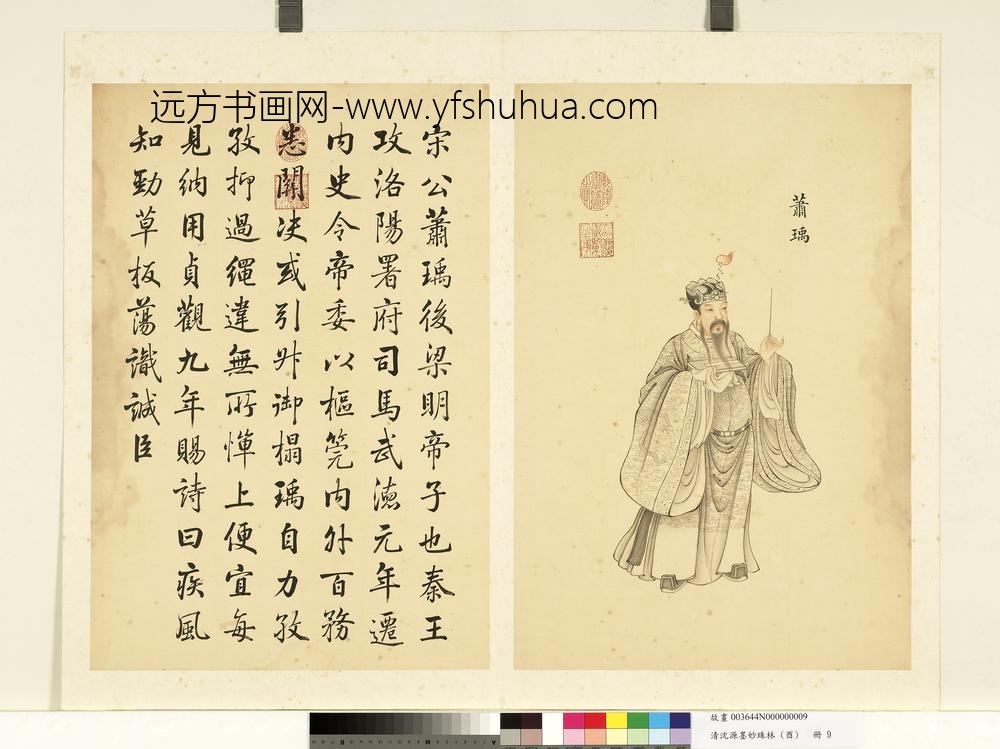 远方书画网-www.yfshuhua.com
蕭瑀
宋公蕭瑀後梁明帝子也秦王
攻洛陽署府司馬武德元年遷
内史令帝委以樞筦内外百務
悉關决或引升御榻瑀自力孜
孜抑過繩違無所憚上便宜每
見納用貞觀九年賜詩曰疾風
知勁草板蕩識誠臣
故畫 003644N000000009
清沈源墨妙珠林（酉） 冊 9